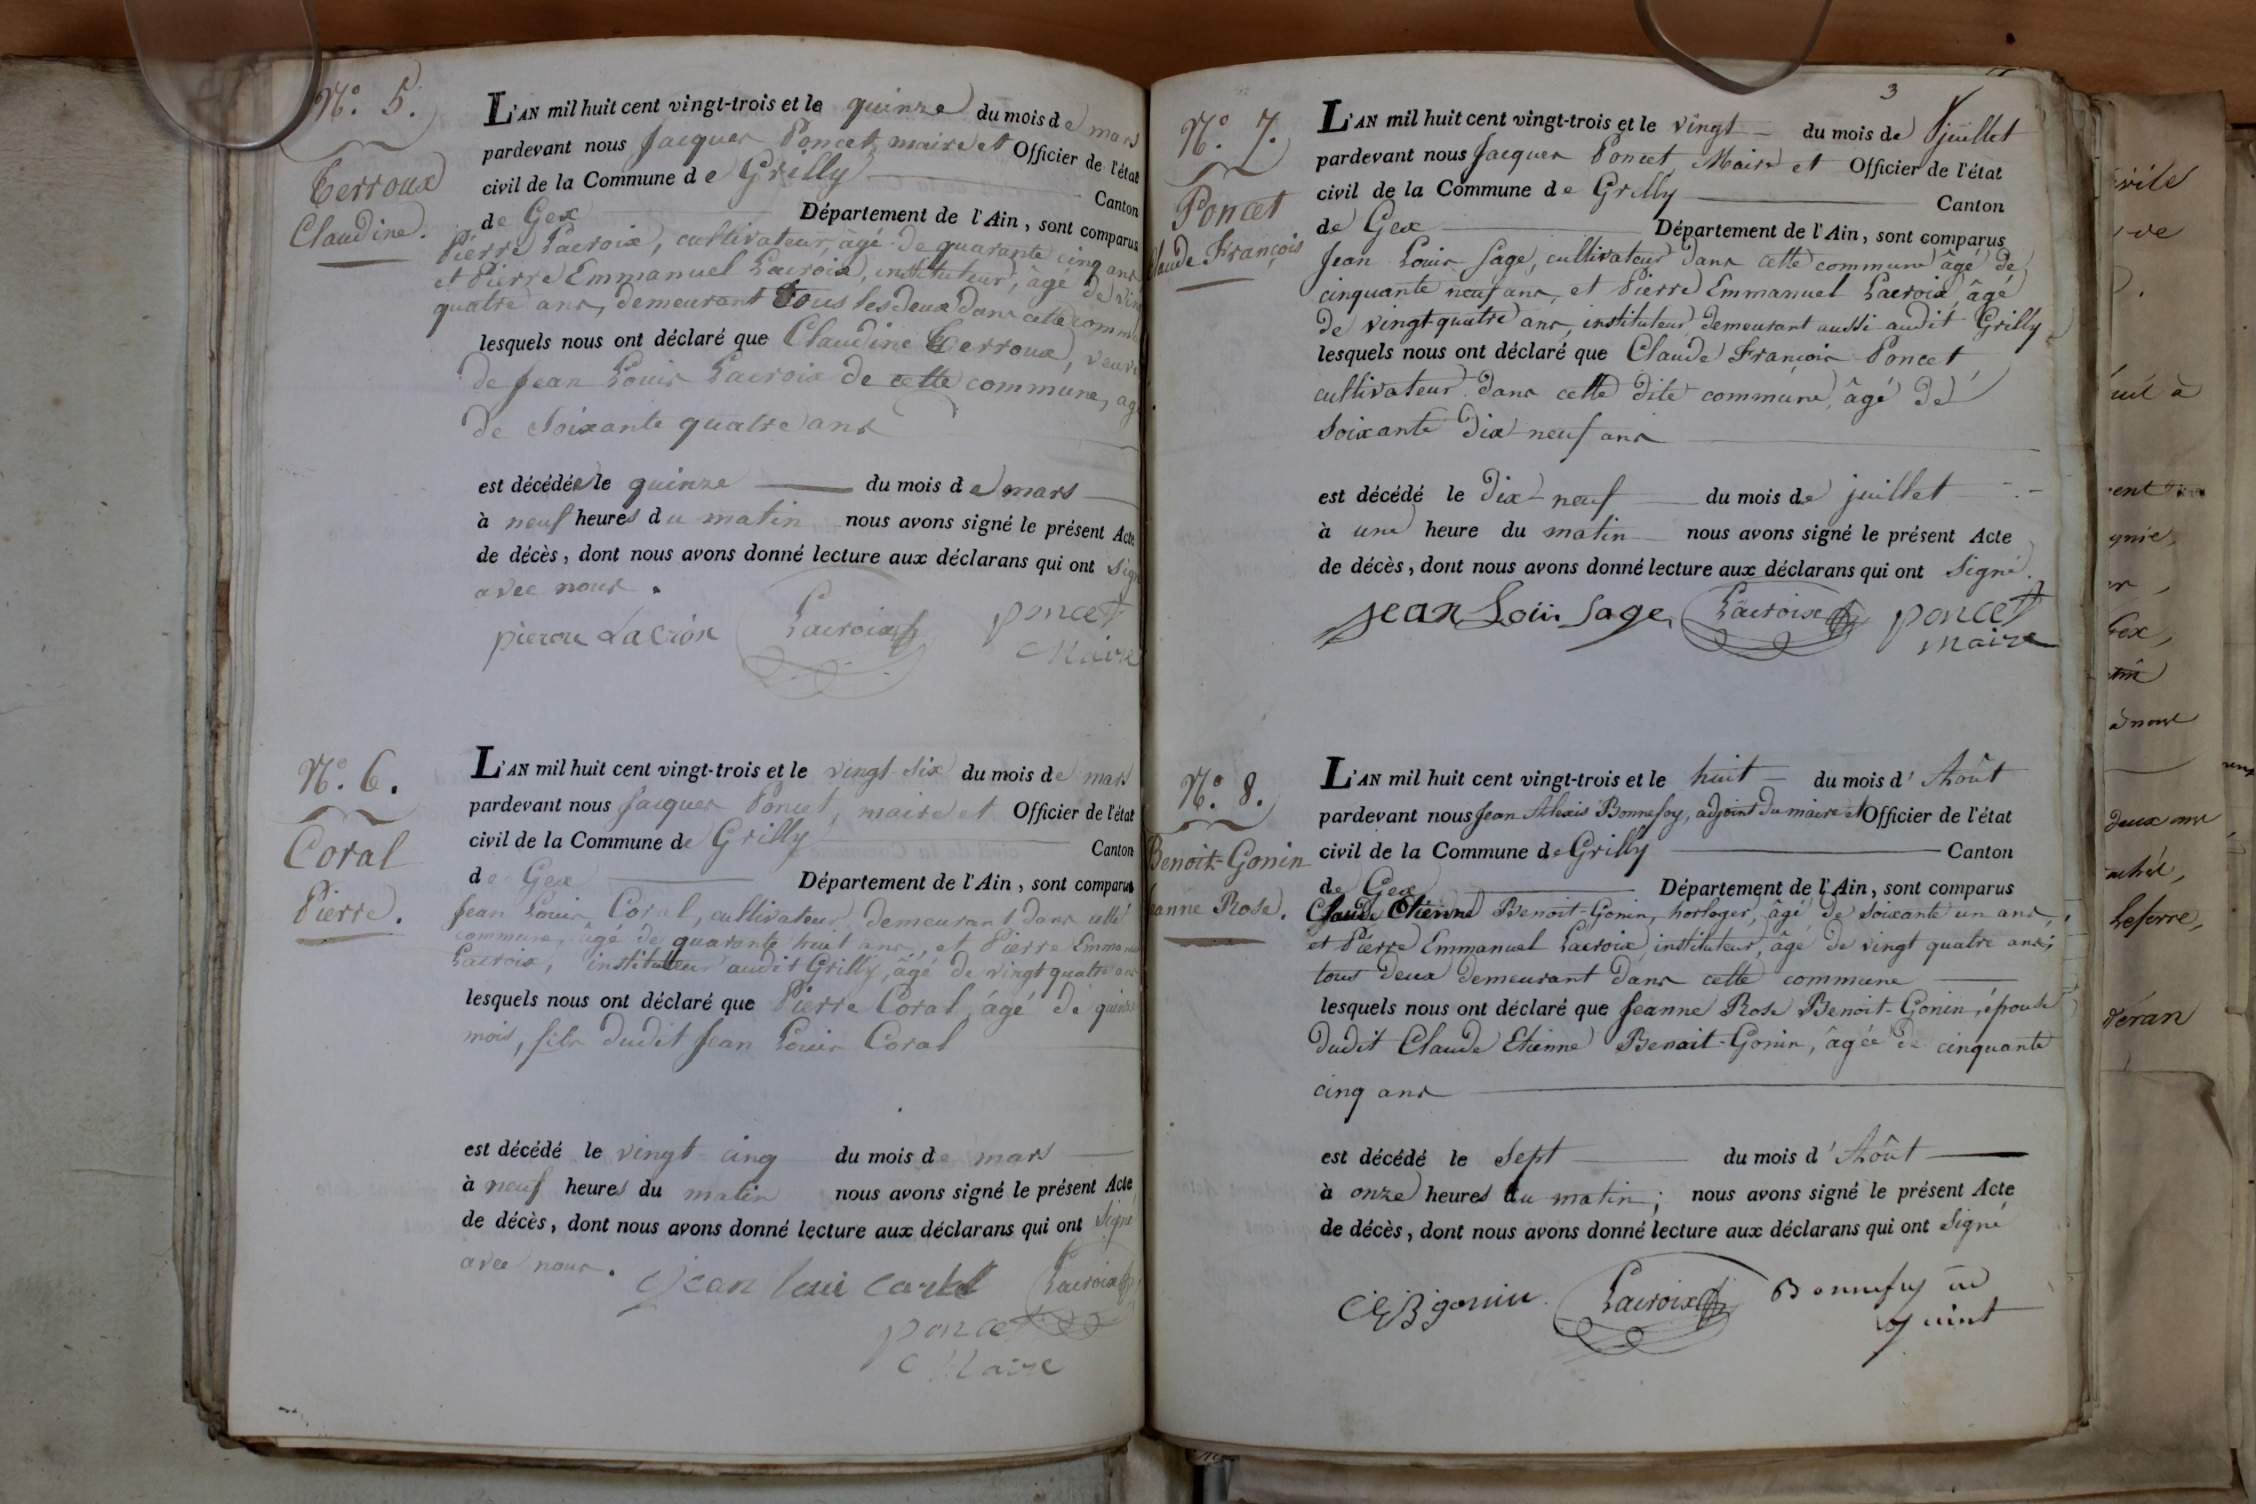 N.° 5.
Terroux
Claudine.
L'AN mil huit cent vingt-trois et le quinze du mois de mars
pardevant nous Jacques Poncet, maire et Officier de l'état
civil de la Commune de Grilly Canton
de Gex Département de l'Ain, sont comparus
Pierre Lacroix, cultivateur, âgé de quarante cinq ans
et Pierre Emmanuel Lacroix, instituteur, âgé de vingt
quatre ans, demeurant tous les deux dans cette commune
lesquels nous ont déclaré que Claudine Terroux, veuve
de Jean Louis Lacroix de cette commune, âgé
de soixante quatre ans
est décédée le quinze du mois de mars
à neuf heures du matin nous avons signé le présent Acte
de décès, dont nous avons donné lecture aux déclarans qui ont signé
avec nous.
pierre Lacroix Lacroix poncet
Maire
N.° 6.
Coral
Pierre.
L'AN mil huit cent vingt-trois et le vingt six du mois de mars
pardevant nous Jacques Poncet, maire et Officier de l'état
civil de la Commune de Grilly Canton
de Gex Département de l'Ain, sont comparus
Jean Louis Coral, cultivateur, demeurant dans cette
commune, âgé de quarante huit ans, et Pierre Emmanuel
Lacroix, instituteur audit Grilly, âgé de vingt quatre ans
lesquels nous ont déclaré que Pierre Coral, âgé de quinze
mois, fils dudit Jean Louis Coral
est décédé le vingt cinq du mois de mars
à neuf heures du matin nous avons signé le présent Acte
de décès, dont nous avons donné lecture aux déclarans qui ont signé
avec nous.
Jean loui Lacroix
poncet
Maire
3
N.° 7.
Poncet
Claude François
L'AN mil huit cent vingt-trois et le vingt du mois de juillet
pardevant nous Jacques Poncet Maire et Officier de l'état
civil de la Commune de Grilly Canton
de Gex Département de l'Ain, sont comparus
Jean Louis Sage, cultivateur dans cette commune âgé de
cinquante neuf ans, et Pierre Emmanuel Lacroix, âgé
de vingt quatre ans, instituteur demeurant aussi audit Grilly
lesquels nous ont déclaré que Claude François Poncet
cultivateur dans cette dite commune, âgé de
soixante dix-neuf ans
est décédé le dix-neuf du mois de juillet
à une heure du matin nous avons signé le présent Acte
de décès, dont nous avons donné lecture aux déclarans qui ont signé.
jean Loui Sage, Lacroix poncet
maire
N.° 8.
Benoit-Gonin
Jeanne Rose.
L'AN mil huit cent vingt-trois et le huit du mois d'Août
pardevant nous Jean Alexis Bonnefoy, adjoint du maire et Officier de l'état
civil de la Commune de Grilly Canton
de Gex Département de l'Ain, sont comparus
Claude Etienne Benoit-Gonin, horloger, âgé de soixante un ans,
et Pierre Emmanuel Lacroix, instituteur, âgé de vingt quatre ans,
tous deux demeurant dans cette commune
lesquels nous ont déclaré que Jeanne Rose Benoit-Gonin, épouse
dudit Claude Etienne Benoit-Gonin, âgée de cinquante
cinq ans
est décédé le sept du mois d'Août
à onze heures du matin; nous avons signé le présent Acte
de décès, dont nous avons donné lecture aux déclarans qui ont signé
Lacroix Bonnefoy